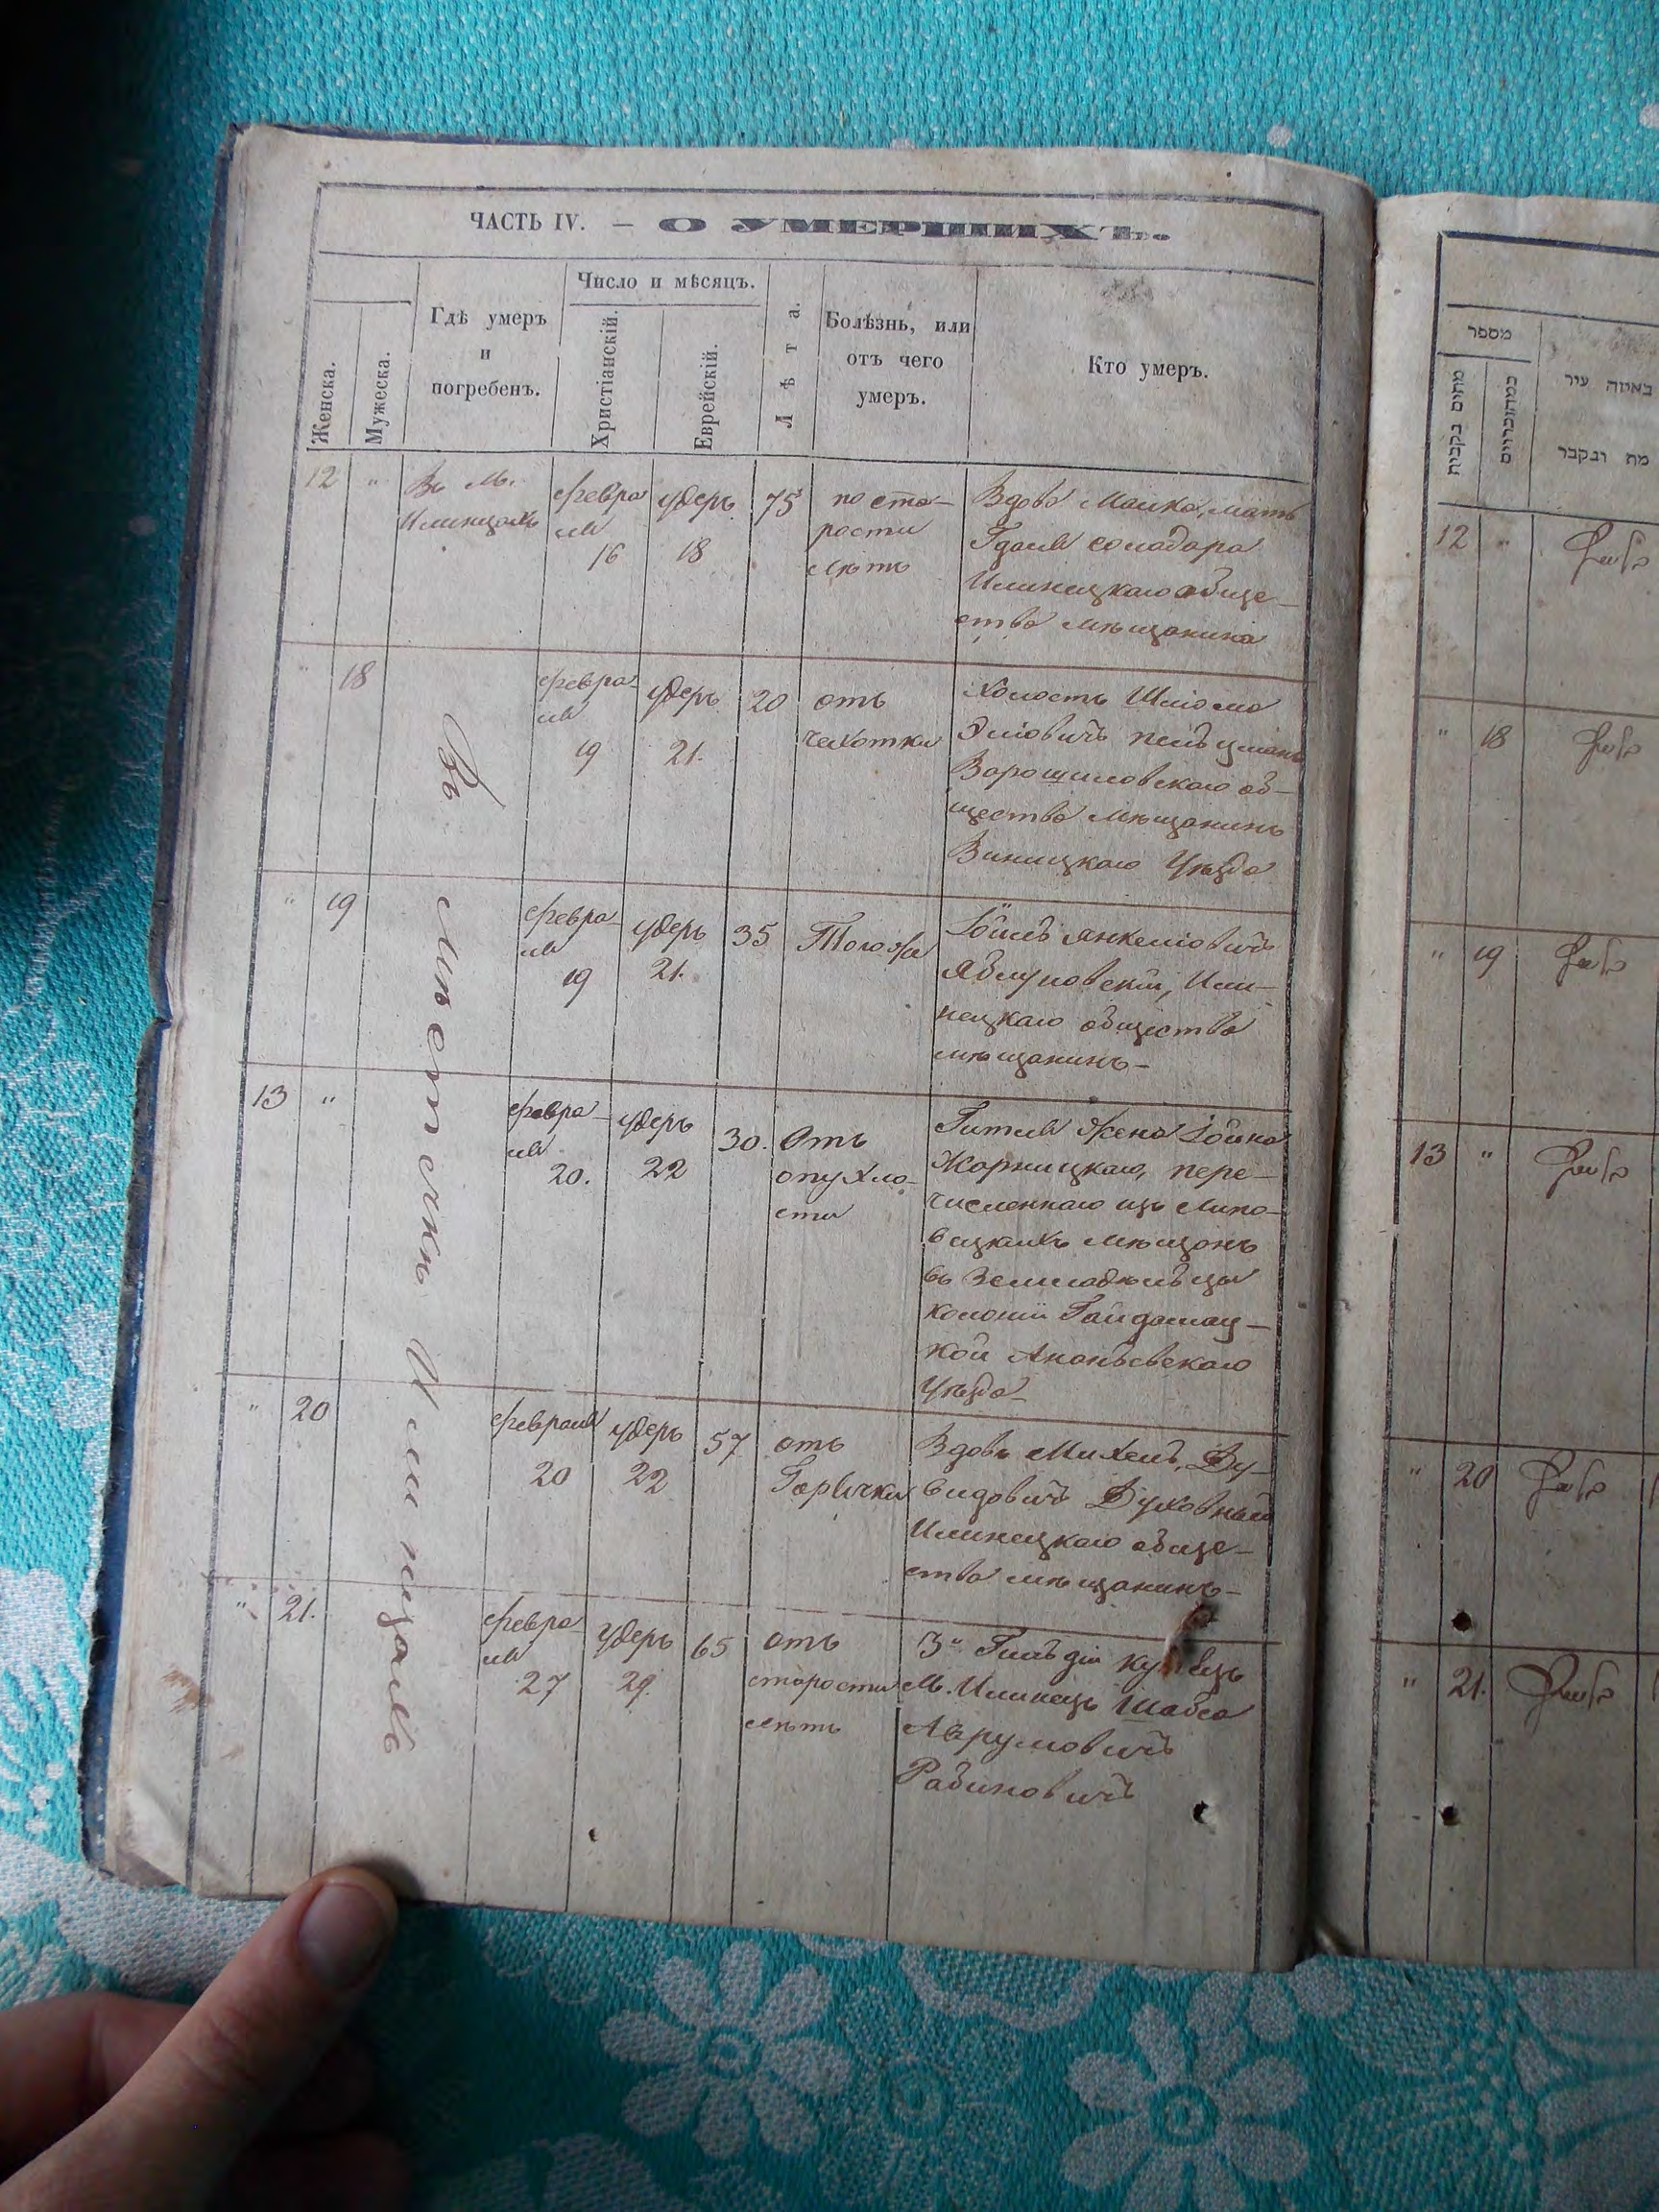 ЧАСТЬ IV. — О УМЕРШИХЪ.
Женска.
Мужеска.
Гдѣ умеръ
и
погребенъ.
Число и мѣсяцъ.
Христіанскій.
Еврейскій.
Лѣта.
Болѣзнь, или
отъ чего
умеръ.
Кто умеръ.
12
"
Въ М.
Илинцахъ
февра
ля
16
Удеръ
18
75
по ста-
рости
лѣтъ
Вдова Малка, мать
Илинецкаго обще-
ства мѣщанина
"
18
февра-
ля
19
Удеръ
21.
20
отъ
чахотки
Холостъ Шліома
Ворошиловскаго об-
щества мѣщанинъ
Виницкаго Уѣзда
"
19
февра-
ля
19
Удеръ
21.
35
Тогожъ
Іойлъ Янкеліовичъ
Яблуновскій, Или-
нецкаго общества
мѣщанинъ-
13
"
февра-
ля
20.
Удеръ
22
30.
Отъ
опухло-
сти
Гитля Жена Іойны
Жорницкаго, пере-
численнаго изъ Липо-
вецкихъ мѣщанъ
въ Землидѣльцы
колоніи Гайдамац-
кой Ананьевскаго
Уѣзда
"
20
февраля
20
Удеръ
22
57
отъ
Горячки
Вдовъ Михель, Ду-
видовичъ Духовный
Илинецкаго обще-
ства мѣщанинъ-
"
21.
февра
ля
27
Удеръ
29.
65
отъ
старости
лѣтъ
3й Гильдіи купецъ
М. Илинецъ Шабса
Аврумовичъ
Рабиновичъ
Въ мѣстечкѣ Илинцахъ
מספר
מתים נקבות
מתים זכרים
באיזה עיר
מת ונקבר
12
"
"
18
"
19
13
"
"
20
"
21.